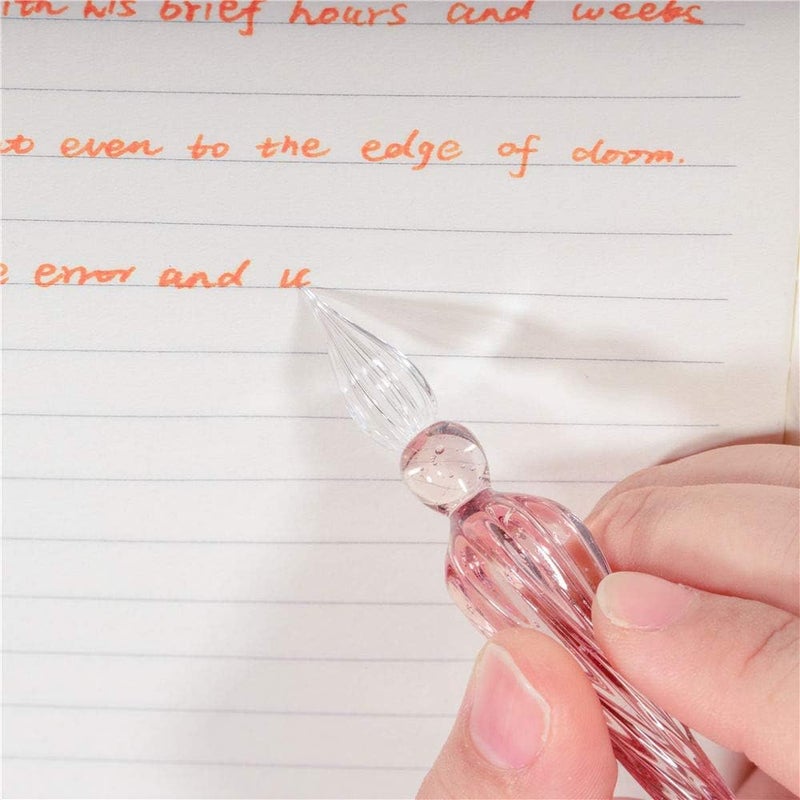 ith his brief hours and weeks
ut even to the edge of doom.
e error and u